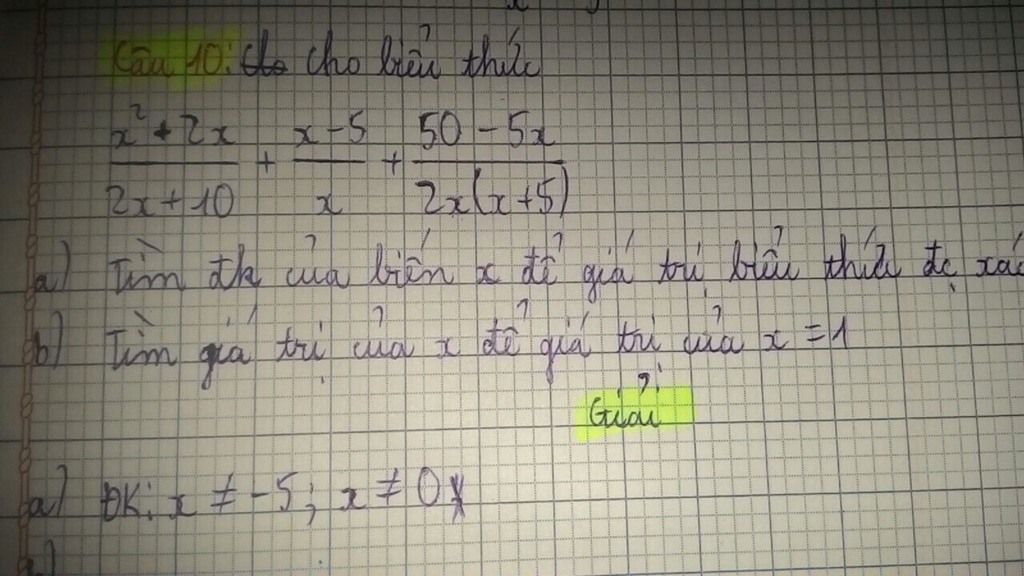 Câu 10: cho biểu thức
x² + 2x / 2x + 10 + x - 5 / x + 50 - 5x / 2x(x + 5)
a) Tìm đk của biến x để giá trị biểu thức đc xác
b) Tìm giá trị của x để giá trị của x = 1
Giải
a) ĐK: x ≠ -5; x ≠ 0